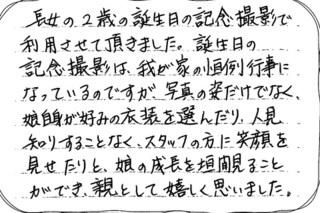 長女の2歳の誕生日の記念撮影で
利用させて頂きました。誕生日の
記念撮影は、我が家の恒例行事に
なっているのですが、写真の姿だけでなく、
娘自身が好みの衣装を選んだり、人見
知りすることなく、スタッフの方に笑顔を
見せたりと、娘の成長を垣間見ること
ができ、親として嬉しく思いました。